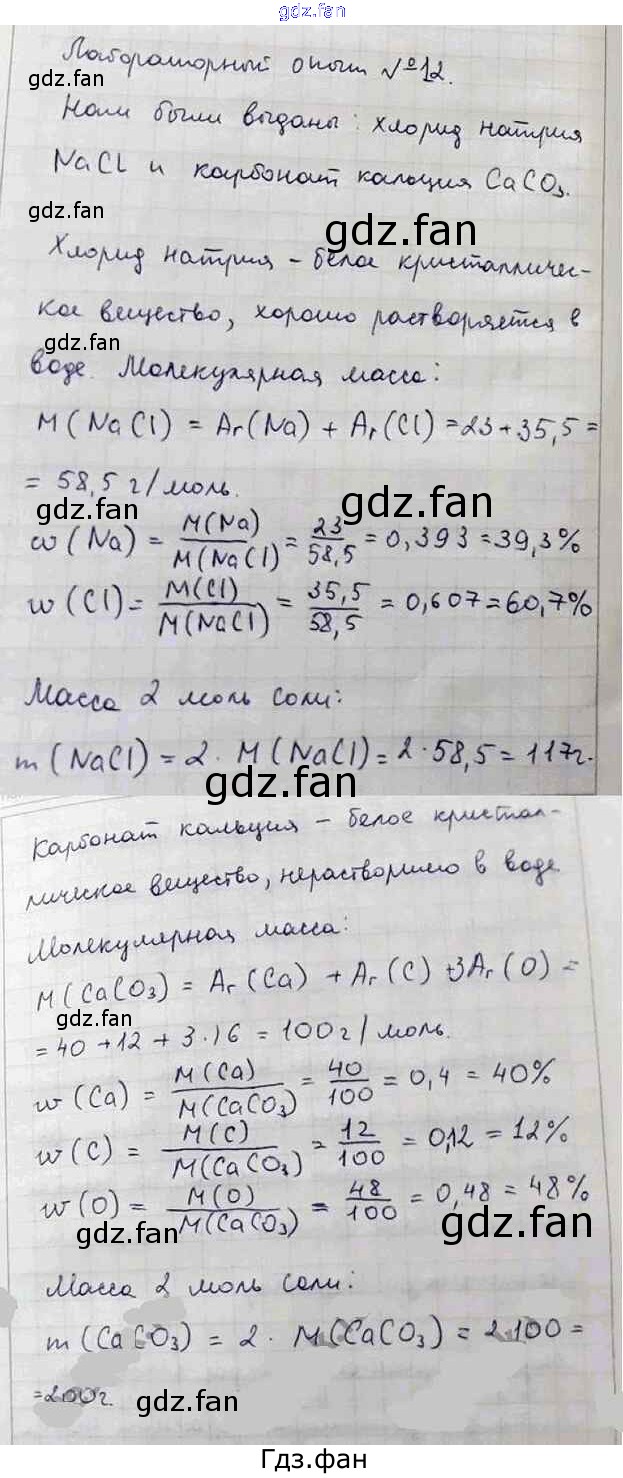 gdz.fan
Лабораторный опыт №12.
gdz.fan
gdz.fan
Нам были выданы: хлорид натрия
NaCl и карбонат кальция CaCO₃.
gdz.fan
gdz.fan
Хлорид натрия – белое кристалличес-
кое вещество, хорошо растворяется в
gdz.fan
воде. Молекулярная масса:
M(NaCl) = Ar(Na) + Ar(Cl) = 23 + 35,5 =
= 58,5 г/моль.
gdz.fan
gdz.fan
w(Na) = M(Na)/M(NaCl) = 23/58,5 = 0,393 = 39,3%
w(Cl) = M(Cl)/M(NaCl) = 35,5/58,5 = 0,607 = 60,7%
Масса 2 моль соли:
m(NaCl) = 2 · M(NaCl) = 2·58,5 = 117г.
gdz.fan
Карбонат кальция – белое кристал-
лическое вещество, нерастворимо в воде
Молекулярная масса:
M(CaCO₃) = Ar(Ca) + Ar(C) + 3Ar(O) =
gdz.fan
= 40 + 12 + 3·16 = 100 г/моль.
w(Ca) = M(Ca)/M(CaCO₃) = 40/100 = 0,4 = 40%
w(C) = M(C)/M(CaCO₃) = 12/100 = 0,12 = 12%
w(O) = M(O)/M(CaCO₃) = 48/100 = 0,48 = 48%
gdz.fan
gdz.fan
Масса 2 моль соли:
m(CaCO₃) = 2 · M(CaCO₃) = 2·100 =
=200г.
gdz.fan
Гдз.фан